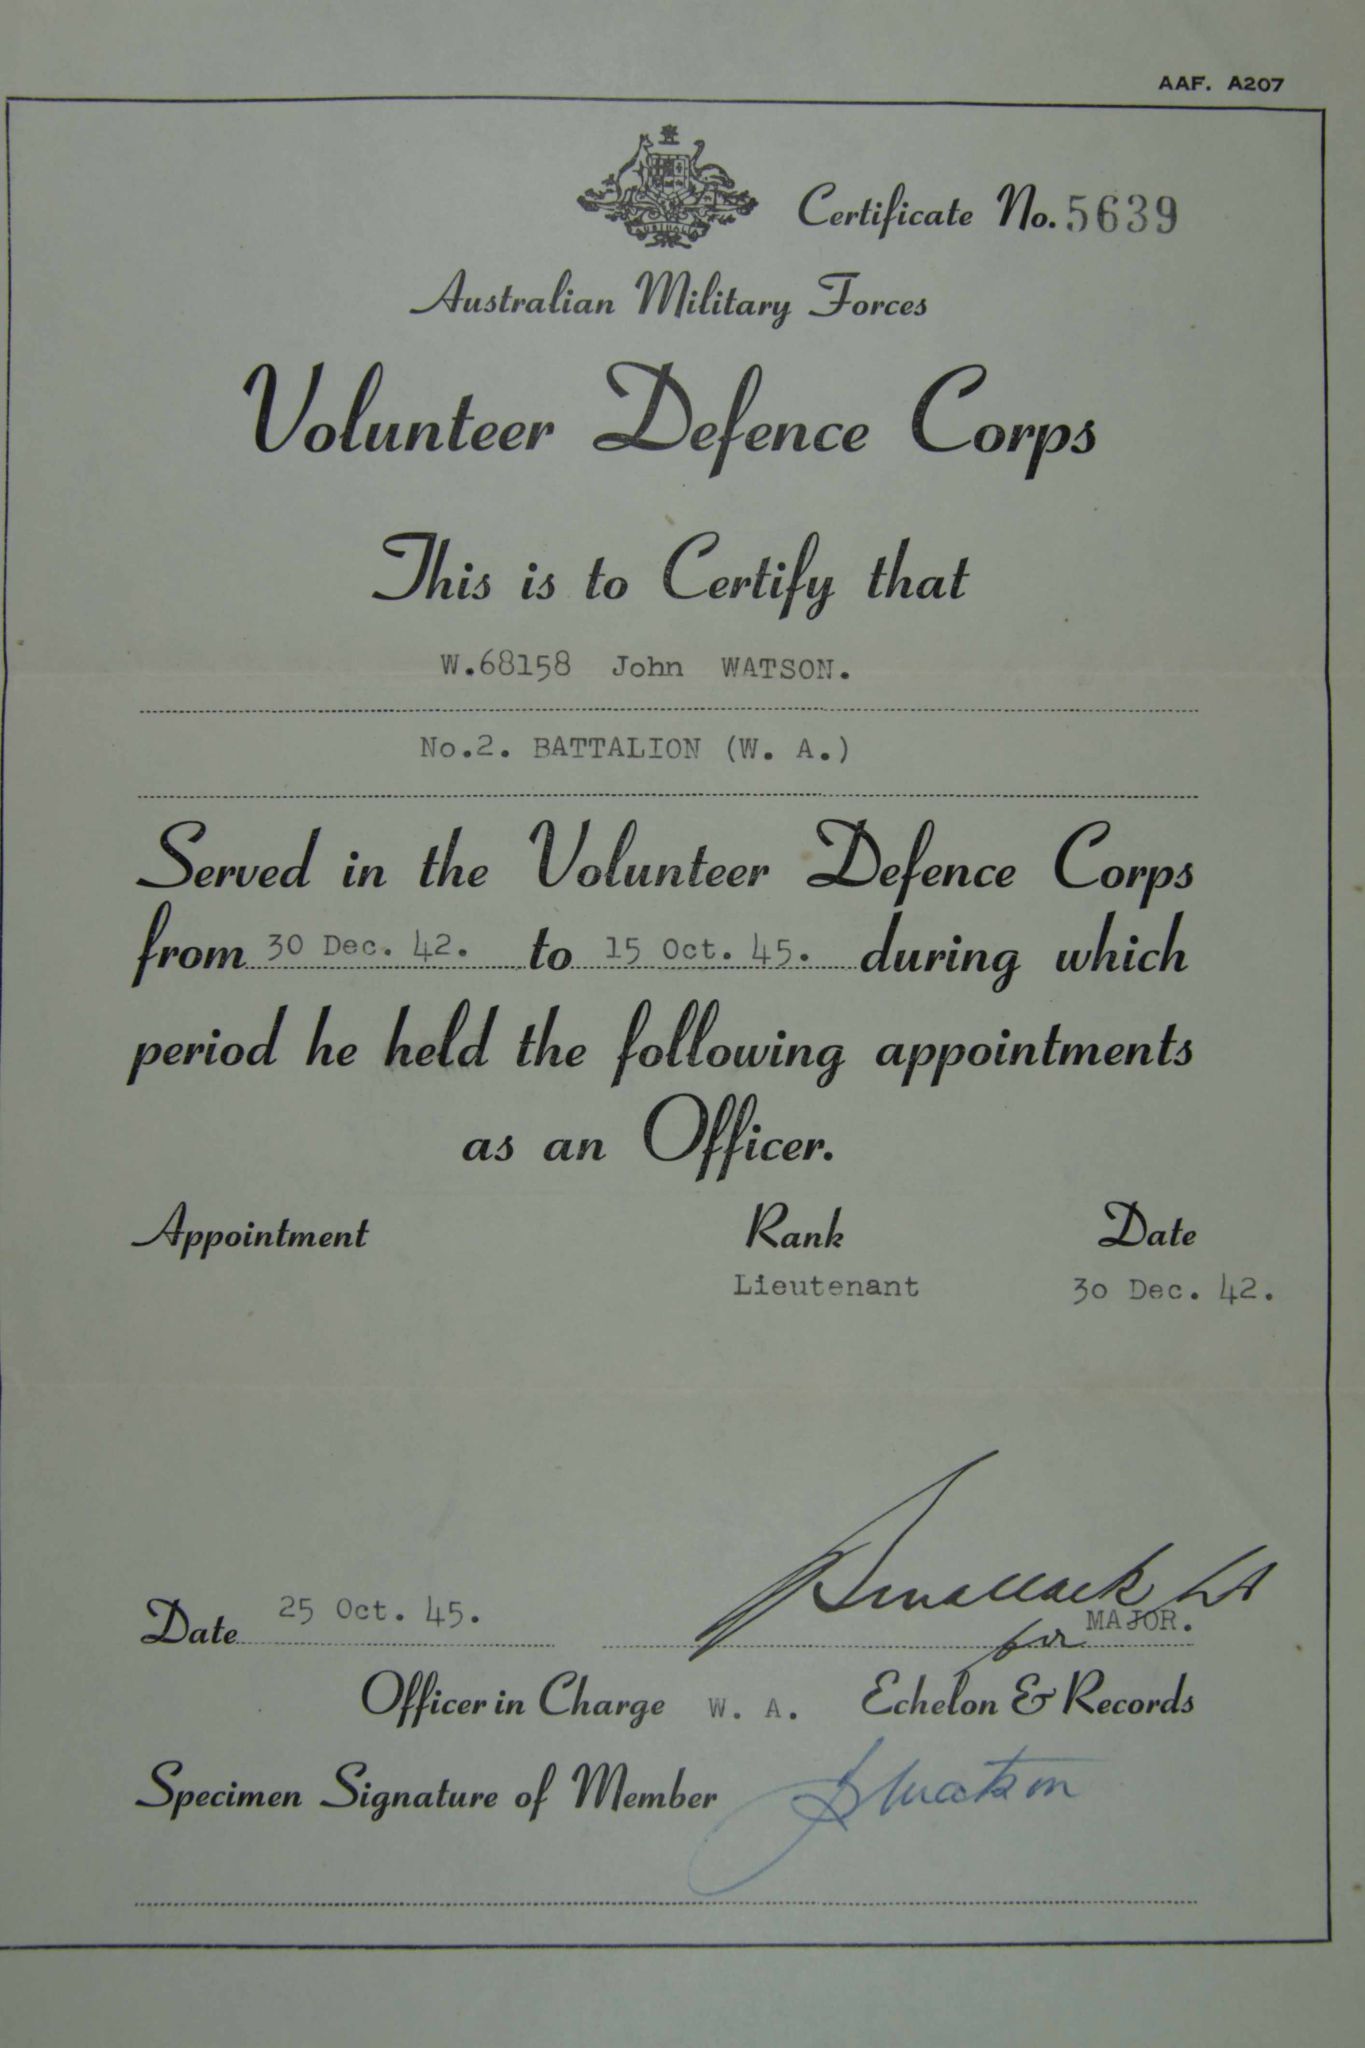 AAF. A207
AUSTRALIA
Certificate No. 5639
Australian Military Forces
Volunteer Defence Corps
This is to Certify that
W.68158 John WATSON.
No.2. BATTALION (W. A.)
Served in the Volunteer Defence Corps
from 30 Dec. 42. to 15 Oct. 45. during which
period he held the following appointments
as an Officer.
Appointment Rank Date
Lieutenant 30 Dec. 42.
Date 25 Oct. 45. for MAJOR.
Officer in Charge W. A. Echelon & Records
Specimen Signature of Member J Watson